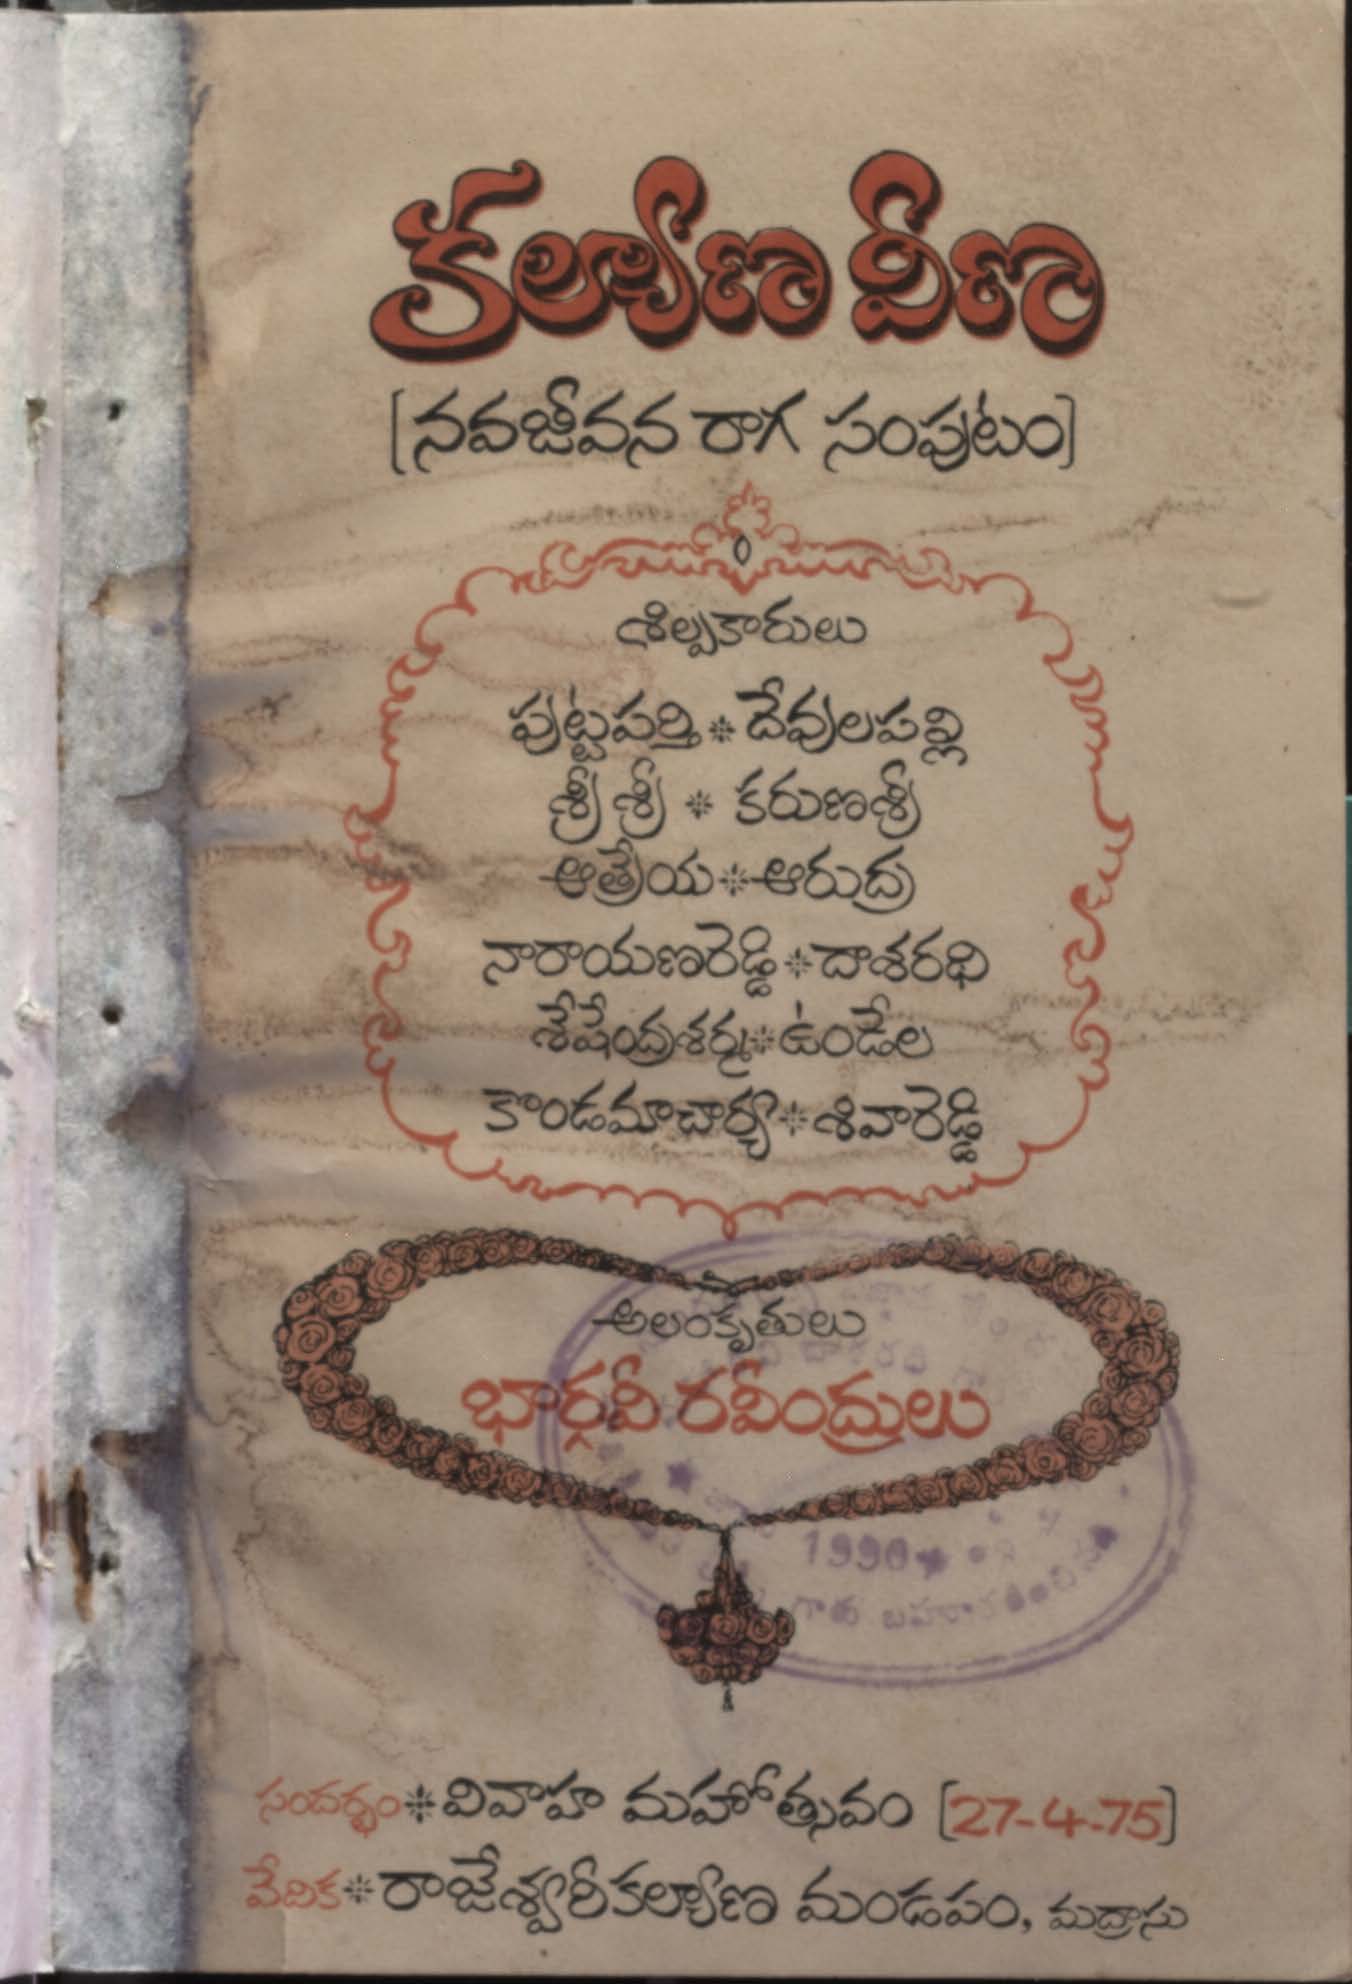 కల్యాణ వీణ
[నవజీవన రాగ సంపుటం]
శిల్పకారులు
పుట్టపర్తి * దేవులపల్లి
శ్రీ శ్రీ * కరుణశ్రీ
ఆత్రేయ * ఆరుద్ర
నారాయణరెడ్డి * దాశరథి
శేషేంద్రశర్మ * ఉండేల
కొండమాచార్య * శివారెడ్డి
అలంకృతులు
భార్గవీ రవీంద్రులు
1990
గారు బహూకరించిన
సందర్భం * వివాహ మహోత్సవం [27-4-75]
వేదిక * రాజేశ్వరీకల్యాణ మండపం, మద్రాసు